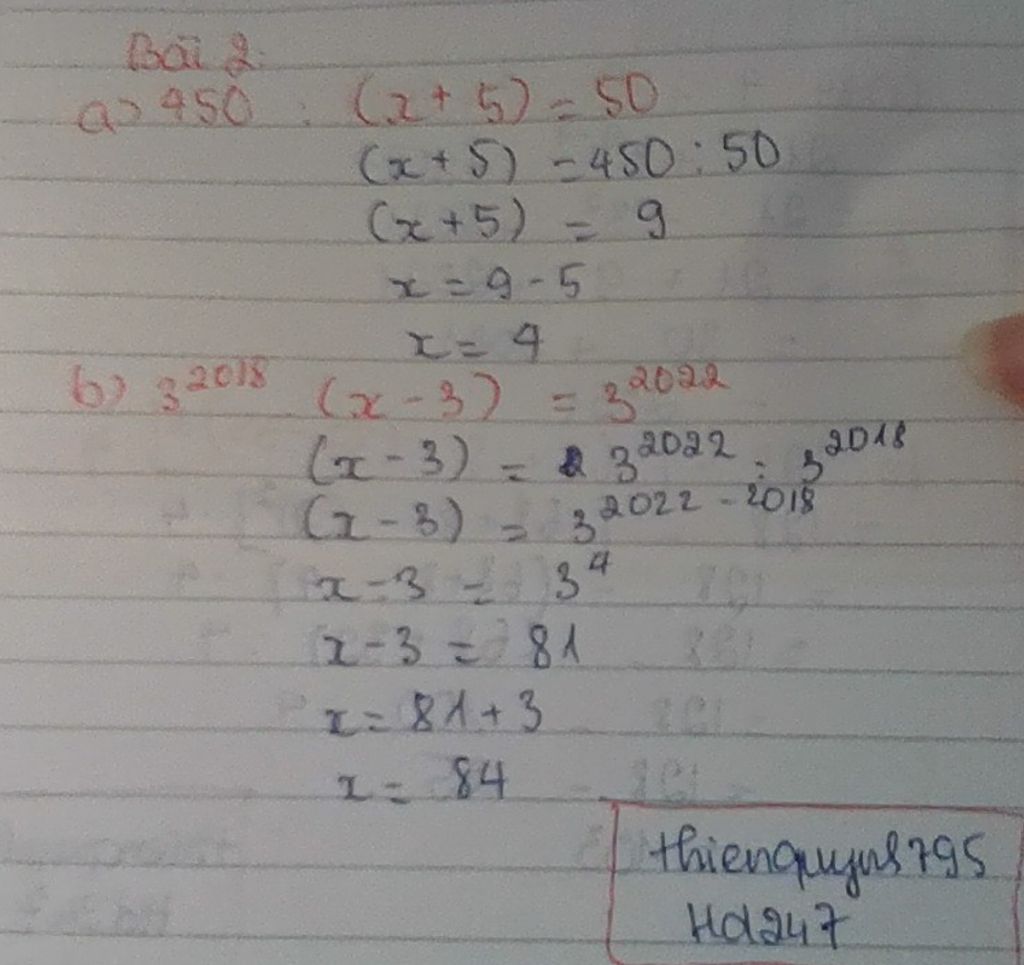 Bài 2
a) 450 : (x + 5) = 50
(x + 5) = 450 : 50
(x + 5) = 9
x = 9 - 5
x = 4
b) 3^2018 (x - 3) = 3^2022
(x - 3) = 3^2022 : 3^2018
(x - 3) = 3^2022 - 2018
x - 3 = 3^4
x - 3 = 81
x = 81 + 3
x = 84
Hd247